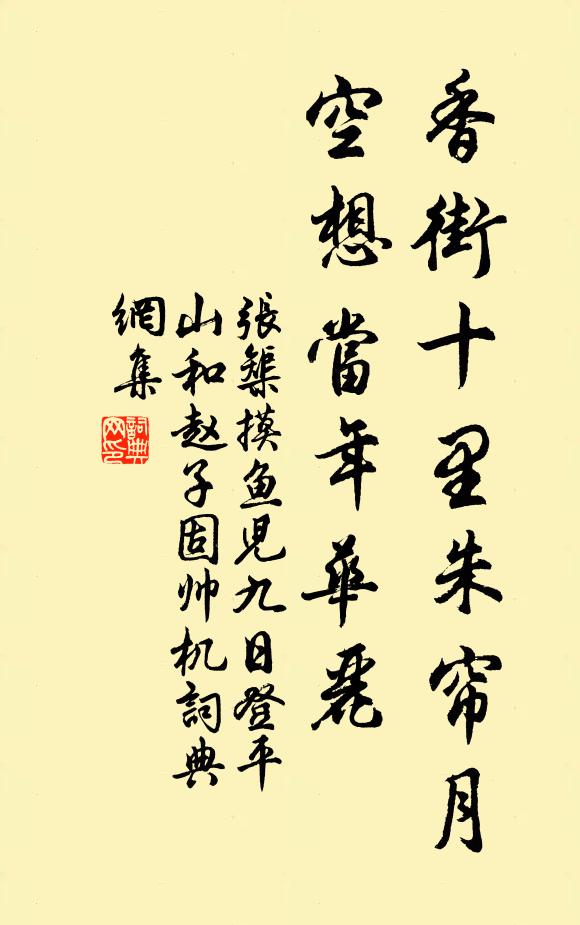 香街十里朱帘月
空想當年華麗
張榘摸鱼兒九日登平
山和赵子固帅机詞典
網集
詞典
网印